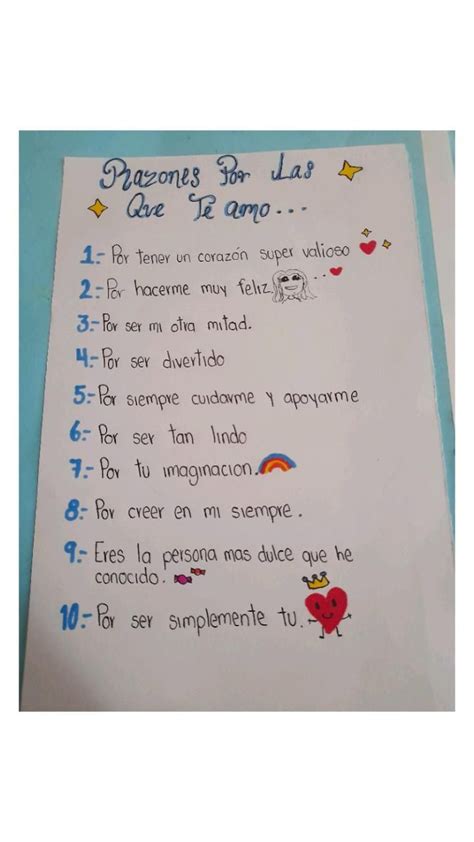 Razones Por Las
Que Te amo...
1.- Por tener un corazón super valioso
2.- Por hacerme muy feliz.
3.- Por ser mi otra mitad.
4.- Por ser divertido
5.- Por siempre cuidarme y apoyarme
6.- Por ser tan lindo
7.- Por tu imaginacion.
8.- Por creer en mi siempre.
9.- Eres la persona mas dulce que he
conocido.
10.- Por ser simplemente tu.